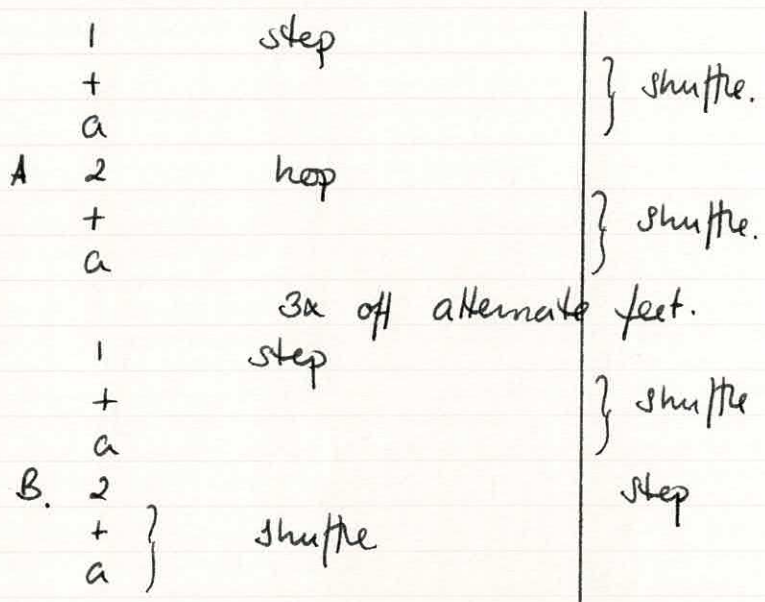 1 step
+ } shuffle.
a
A 2 hop
+ } shuffle.
a
3x off alternate feet.
1 step
+ } shuffle
a
B. 2 step
+ } shuffle
a